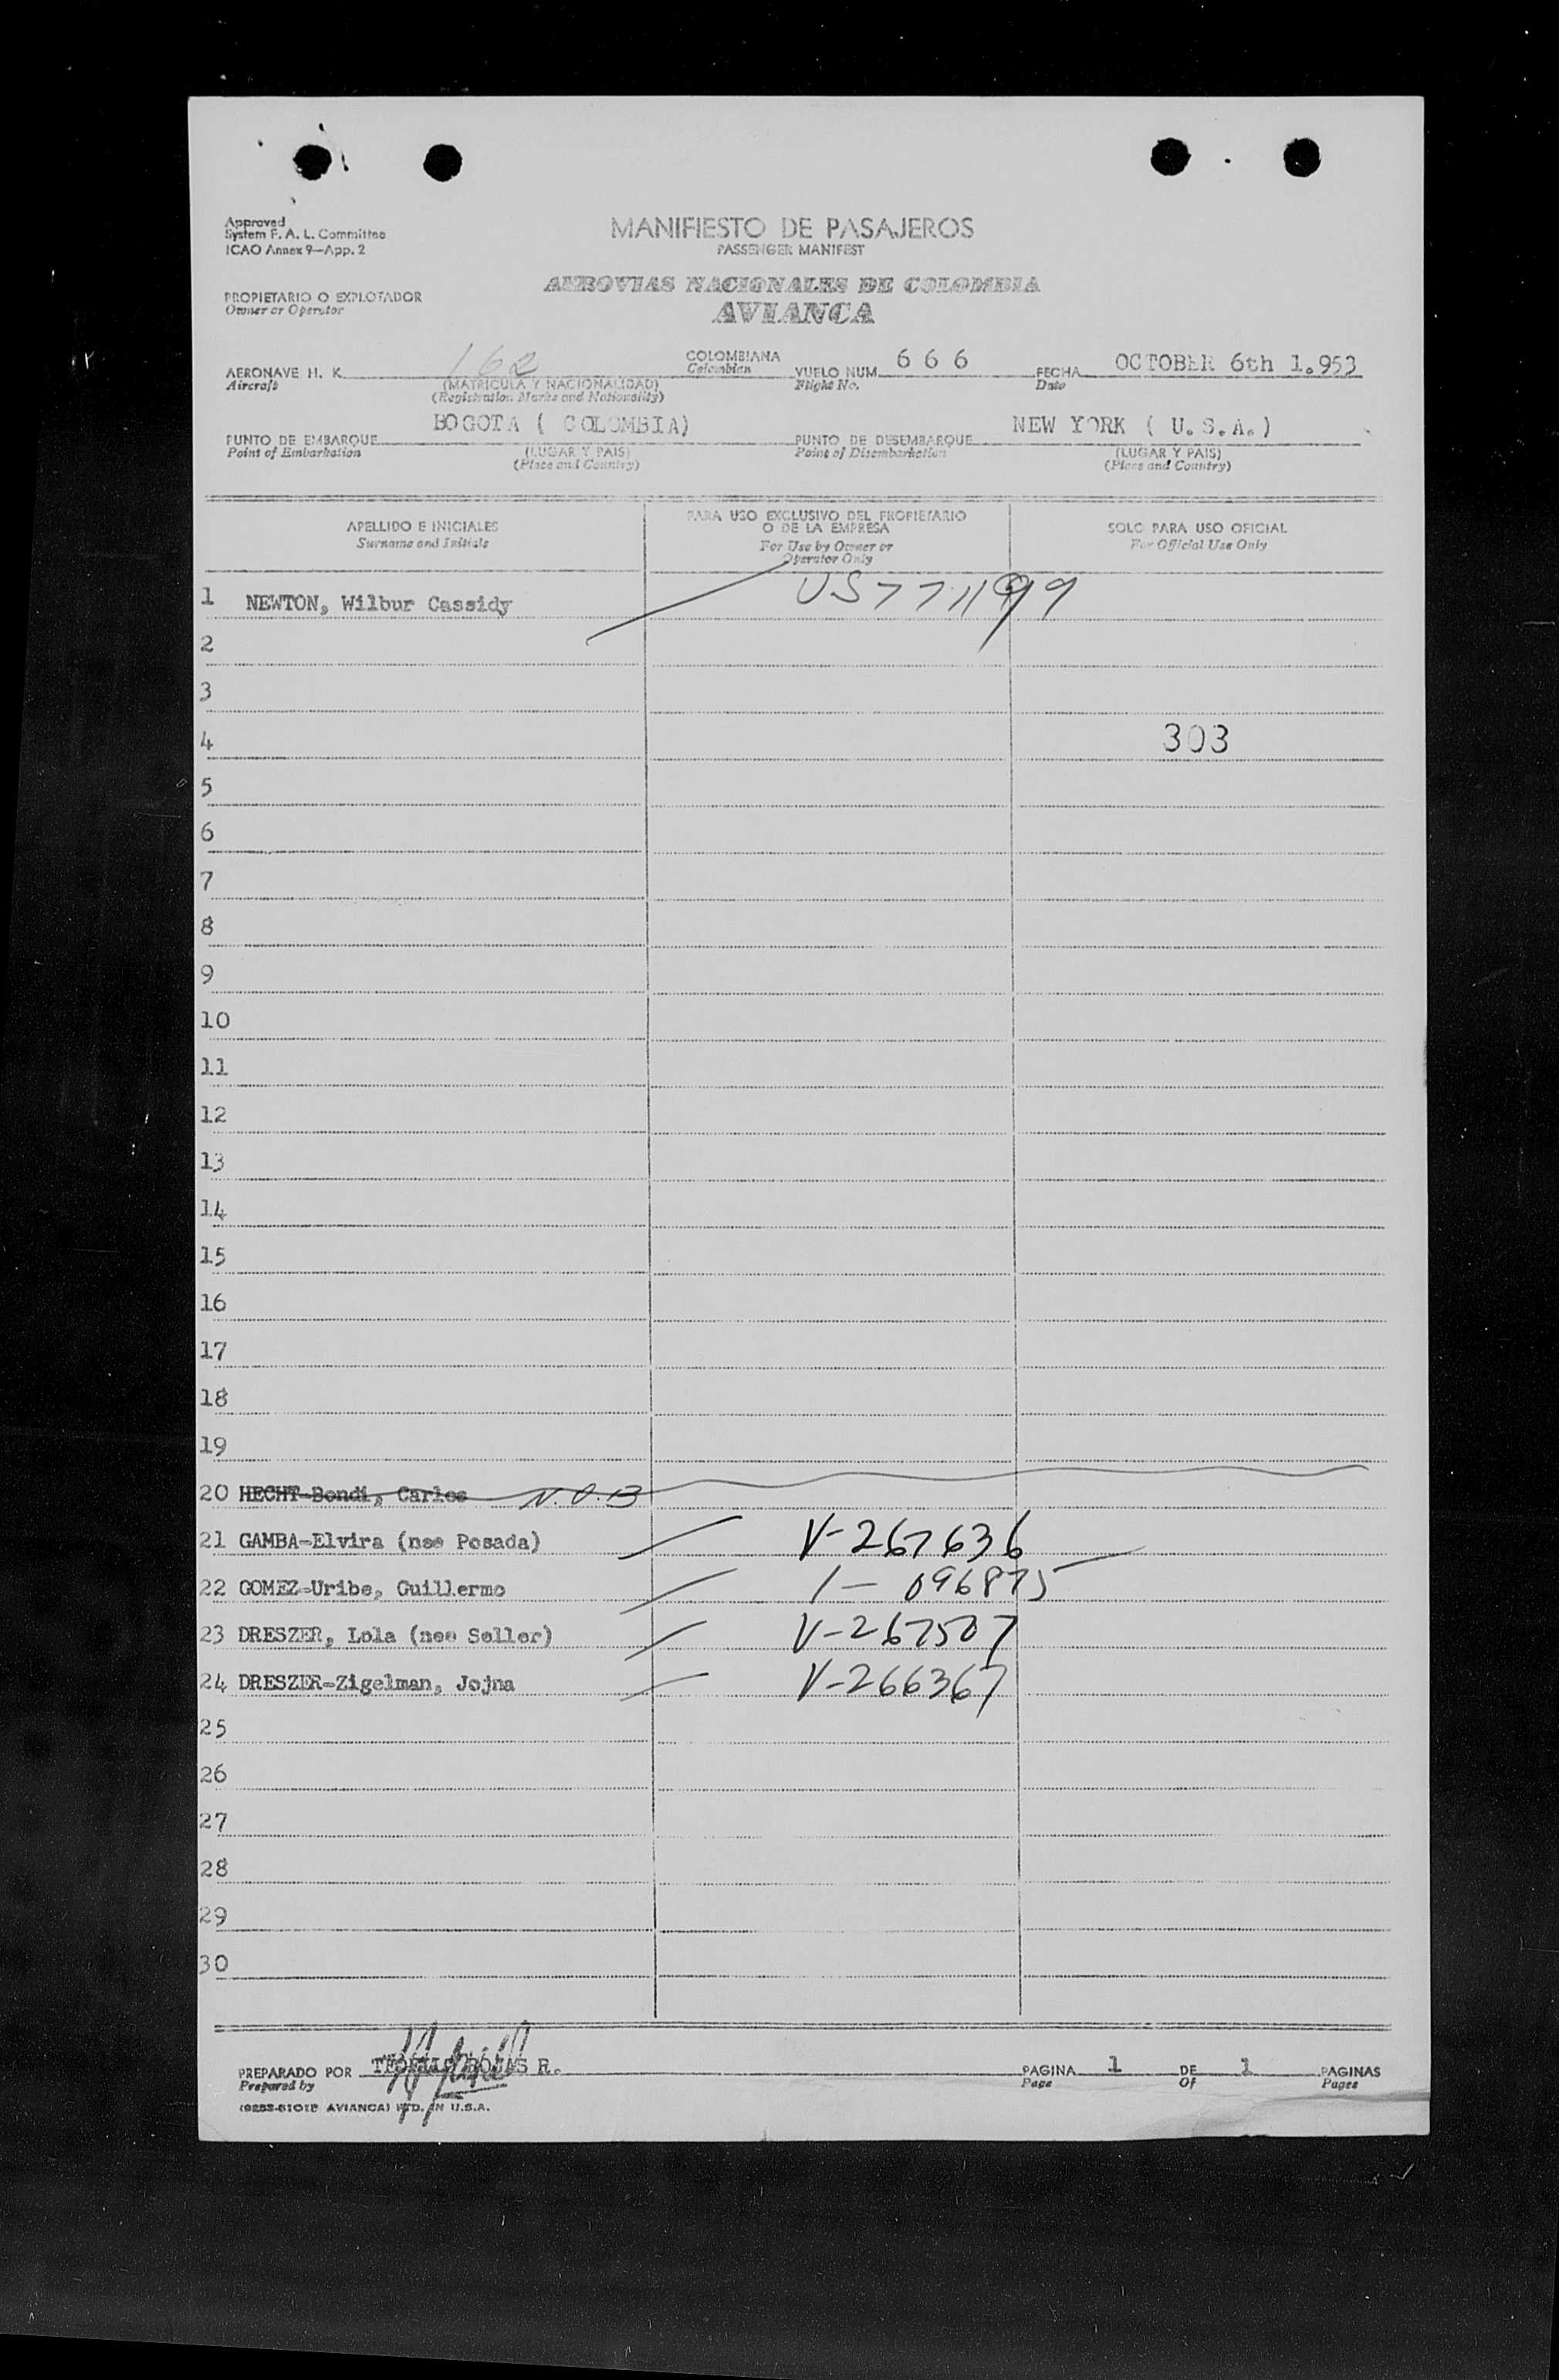 Approved
System F. A. L. Committee
ICAO Annex 9—App. 2
MANIFIESTO DE PASAJEROS
PASSENGER MANIFEST
PROPIETARIO O EXPLOTADOR
Owner or Operator
AEROVIAS NACIONALES DE COLOMBIA
AVIANCA
AERONAVE H. K. 162 COLOMBIANA VUELO NUM. 6 6 6 FECHA OCTOBER 6th 1.953
Aircraft (MATRICULA Y NACIONALIDAD) Colombian Flight No. Date
(Registration Marks and Nationality)
PUNTO DE EMBARQUE BOGOTA ( COLOMBIA) PUNTO DE DESEMBARQUE NEW YORK ( U.S.A.)
Point of Embarkation (LUGAR Y PAIS) Point of Disembarkation (LUGAR Y PAIS)
(Place and Country) (Place and Country)
APELLIDO E INICIALES
Surname and Initials
PARA USO EXCLUSIVO DEL PROPIETARIO
O DE LA EMPRESA
For Use by Owner or
Operator Only
SOLO PARA USO OFICIAL
For Official Use Only
1 NEWTON, Wilbur Cassidy
2
3
4 303
5
6
7
8
9
10
11
12
13
14
15
16
17
18
19
20 HECHT-Bondi, Carlos N.O.B
21 GAMBA-Elvira (nee Posada) V-267636
22 GOMEZ-Uribe, Guillermo 1- 096875
23 DRESZER, Lola (nee Seller) V-267507
24 DRESZER-Zigelman, Jojna V-266367
25
26
27
28
29
30
PREPARADO POR ROJAS R. PAGINA 1 DE 1 PAGINAS
Prepared by Page Of Pages
AVIANCA) IN U.S.A.